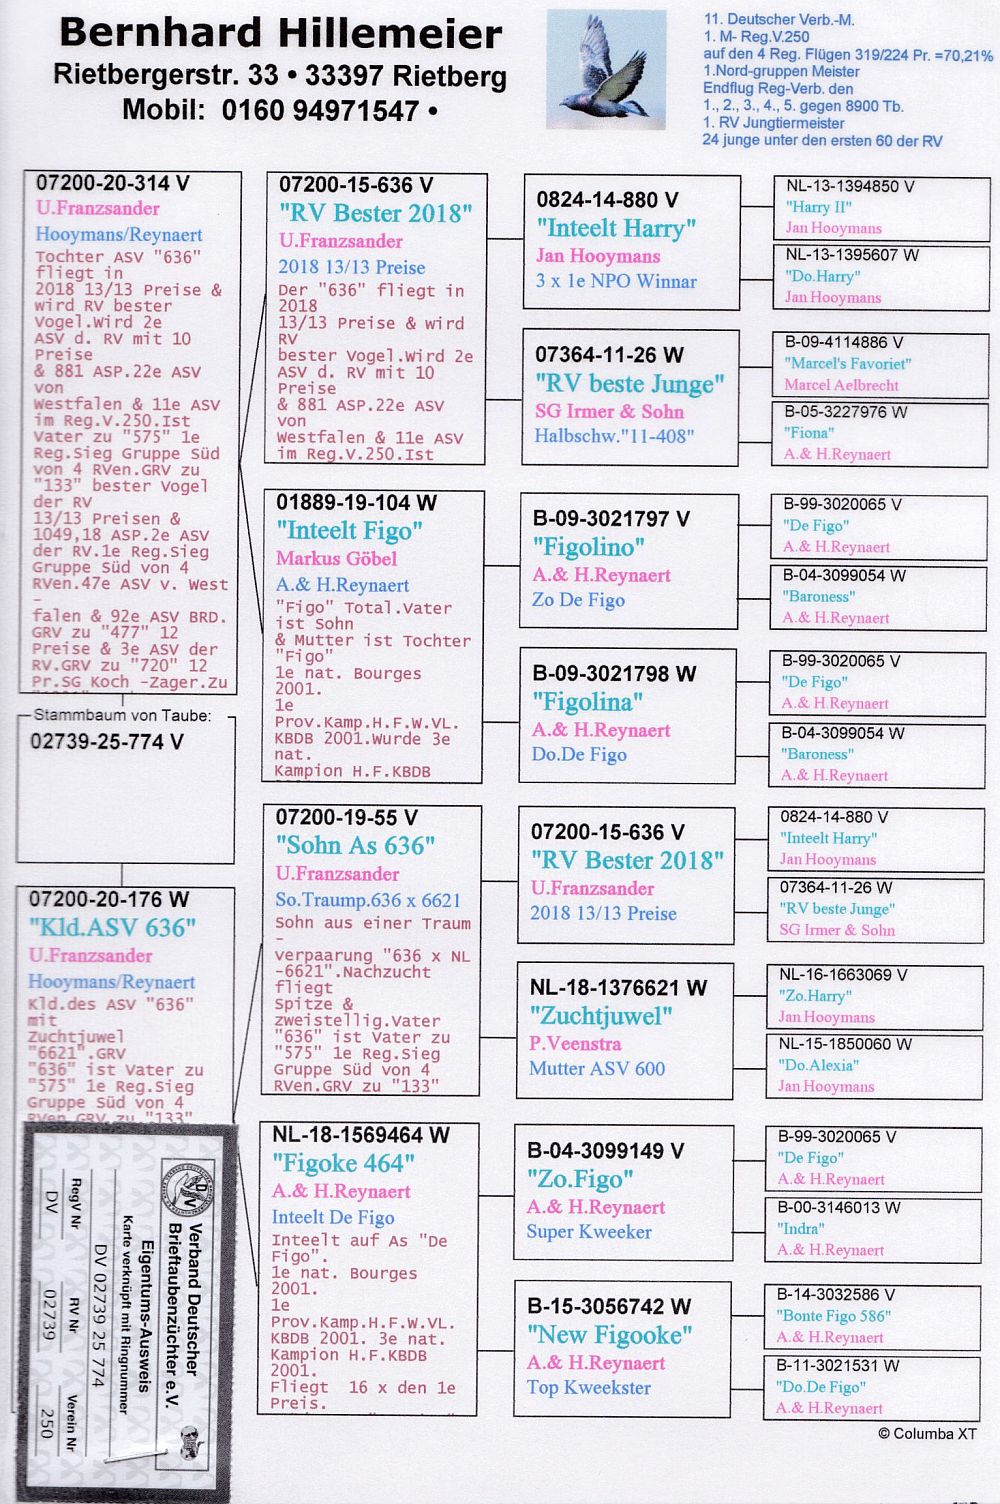 Bernhard Hillemeier
Rietbergerstr. 33 • 33397 Rietberg
Mobil: 0160 94971547 •
11. Deutscher Verb.-M.
1. M- Reg.V.250
auf den 4 Reg. Flügen 319/224 Pr. =70,21%
1.Nord-gruppen Meister
Endflug Reg-Verb. den
1., 2., 3., 4., 5. gegen 8900 Tb.
1. RV Jungtiermeister
24 junge unter den ersten 60 der RV
07200-20-314 V
U.Franzsander
Hooymans/Reynaert
Tochter ASV "636"
fliegt in
2018 13/13 Preise &
wird RV bester
Vogel.Wird 2e
ASV d. RV mit 10
Preise
& 881 ASP.22e ASV
von
Westfalen & 11e ASV
im Reg.V.250.Ist
Vater zu "575" 1e
Reg.Sieg Gruppe Süd
von 4 RVen.GRV zu
"133" bester Vogel
der RV
13/13 Preisen &
1049,18 ASP.2e ASV
der RV.1e Reg.Sieg
Gruppe Süd von 4
RVen.47e ASV v. West
-
falen & 92e ASV BRD.
GRV zu "477" 12
Preise & 3e ASV der
RV.GRV zu "720" 12
Pr.SG Koch -Zager.Zu
Stammbaum von Taube:
02739-25-774 V
07200-20-176 W
"Kld.ASV 636"
U.Franzsander
Hooymans/Reynaert
Kld.des ASV "636"
mit
Zuchtjuwel
"6621".GRV
"636" ist Vater zu
"575" 1e Reg.Sieg
Gruppe Süd von 4
RVen.GRV zu "133"
Verband Deutscher
Brieftaubenzüchter e.V.
Eigentums-Ausweis
Karte verknüpft mit Ringnummer
DV 02739 25 774
RegV Nr
RV Nr
Verein Nr
DV
02739
250
07200-15-636 V
"RV Bester 2018"
U.Franzsander
2018 13/13 Preise
Der "636" fliegt in
2018
13/13 Preise & wird
RV
bester Vogel.Wird 2e
ASV d. RV mit 10
Preise
& 881 ASP.22e ASV
von
Westfalen & 11e ASV
im Reg.V.250.Ist
01889-19-104 W
"Inteelt Figo"
Markus Göbel
A.& H.Reynaert
"Figo" Total.Vater
ist Sohn
& Mutter ist Tochter
"Figo"
1e nat. Bourges
2001.
1e
Prov.Kamp.H.F.W.VL.
KBDB 2001.Wurde 3e
nat.
Kampion H.F.KBDB
07200-19-55 V
"Sohn As 636"
U.Franzsander
So.Traump.636 x 6621
Sohn aus einer Traum
-
verpaarung "636 x NL
-6621".Nachzucht
fliegt
Spitze &
zweistellig.Vater
"636" ist Vater zu
"575" 1e Reg.Sieg
Gruppe Süd von 4
RVen.GRV zu "133"
NL-18-1569464 W
"Figoke 464"
A.& H.Reynaert
Inteelt De Figo
Inteelt auf As "De
Figo".
1e nat. Bourges
2001.
1e
Prov.Kamp.H.F.W.VL.
KBDB 2001. 3e nat.
Kampion H.F.KBDB
2001.
Fliegt 16 x den 1e
Preis.
0824-14-880 V
"Inteelt Harry"
Jan Hooymans
3 x 1e NPO Winnar
07364-11-26 W
"RV beste Junge"
SG Irmer & Sohn
Halbschw."11-408"
B-09-3021797 V
"Figolino"
A.& H.Reynaert
Zo De Figo
B-09-3021798 W
"Figolina"
A.& H.Reynaert
Do.De Figo
07200-15-636 V
"RV Bester 2018"
U.Franzsander
2018 13/13 Preise
NL-18-1376621 W
"Zuchtjuwel"
P.Veenstra
Mutter ASV 600
B-04-3099149 V
"Zo.Figo"
A.& H.Reynaert
Super Kweeker
B-15-3056742 W
"New Figooke"
A.& H.Reynaert
Top Kweekster
NL-13-1394850 V
"Harry II"
Jan Hooymans
NL-13-1395607 W
"Do.Harry"
Jan Hooymans
B-09-4114886 V
"Marcel's Favoriet"
Marcel Aelbrecht
B-05-3227976 W
"Fiona"
A.& H.Reynaert
B-99-3020065 V
"De Figo"
A.& H.Reynaert
B-04-3099054 W
"Baroness"
A.& H.Reynaert
B-99-3020065 V
"De Figo"
A.& H.Reynaert
B-04-3099054 W
"Baroness"
A.& H.Reynaert
0824-14-880 V
"Inteelt Harry"
Jan Hooymans
07364-11-26 W
"RV beste Junge"
SG Irmer & Sohn
NL-16-1663069 V
"Zo.Harry"
Jan Hooymans
NL-15-1850060 W
"Do.Alexia"
Jan Hooymans
B-99-3020065 V
"De Figo"
A.& H.Reynaert
B-00-3146013 W
"Indra"
A.& H.Reynaert
B-14-3032586 V
"Bonte Figo 586"
A.& H.Reynaert
B-11-3021531 W
"Do.De Figo"
A.& H.Reynaert
© Columba XT